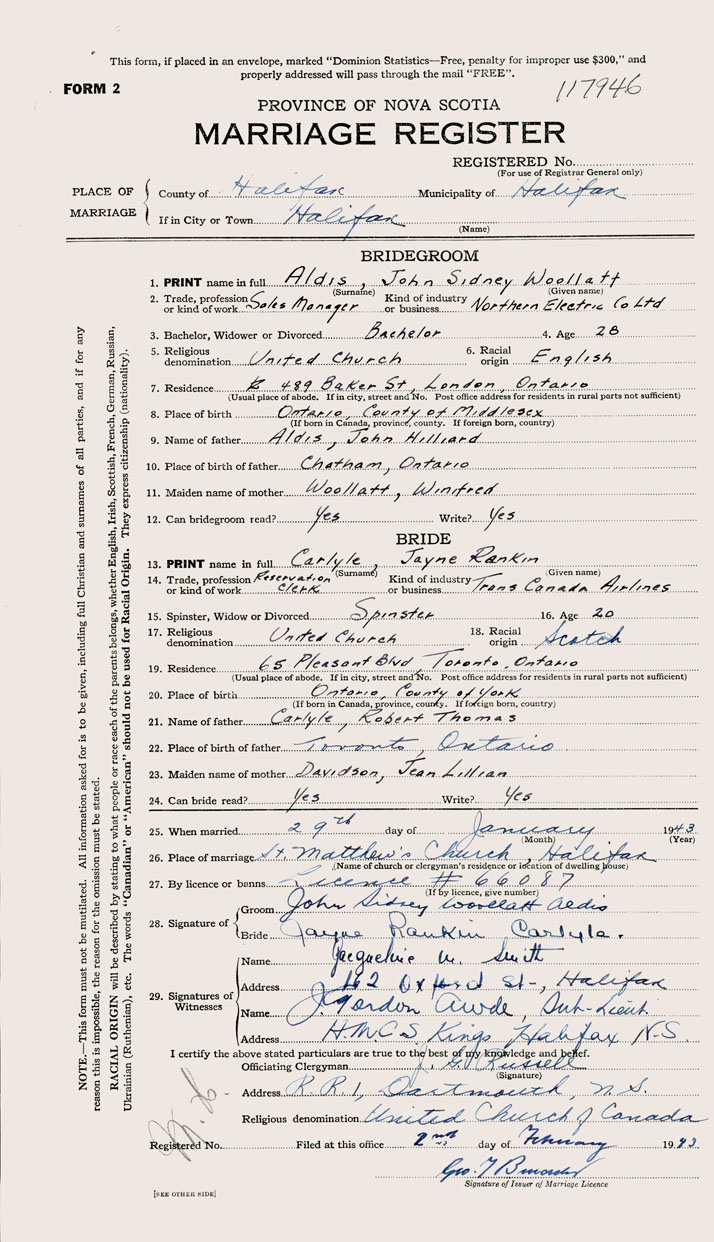 This form, if placed in an envelope, marked "Dominion Statistics—Free, penalty for improper use $300," and
properly addressed will pass through the mail "FREE".
FORM 2
117946
PROVINCE OF NOVA SCOTIA
MARRIAGE REGISTER
REGISTERED No.
(For use of Registrar General only)
PLACE OF MARRIAGE
County of Halifax Municipality of Halifax
If in City or Town Halifax
(Name)
BRIDEGROOM
1. PRINT name in full Aldis, John Sidney Woollatt
(Surname) (Given name)
2. Trade, profession or kind of work Sales Manager Kind of industry or business Northern Electric Co Ltd
3. Bachelor, Widower or Divorced Bachelor 4. Age 28
5. Religious denomination United Church 6. Racial origin English
7. Residence 489 Baker St, London, Ontario
(Usual place of abode. If in city, street and No. Post office address for residents in rural parts not sufficient)
8. Place of birth Ontario, County of Middlesex
(If born in Canada, province, county. If foreign born, country)
9. Name of father Aldis, John Hilliard
10. Place of birth of father Chatham, Ontario
11. Maiden name of mother Woollatt, Winifred
12. Can bridegroom read? Yes Write? Yes
BRIDE
13. PRINT name in full Carlyle, Jayne Rankin
(Surname) (Given name)
14. Trade, profession or kind of work Reservation Clerk Kind of industry or business Trans Canada Airlines
15. Spinster, Widow or Divorced Spinster 16. Age 20
17. Religious denomination United Church 18. Racial origin Scotch
19. Residence 65 Pleasant Blvd, Toronto, Ontario
(Usual place of abode. If in city, street and No. Post office address for residents in rural parts not sufficient)
20. Place of birth Ontario, County of York
(If born in Canada, province, county. If foreign born, country)
21. Name of father Carlyle, Robert Thomas
22. Place of birth of father Toronto, Ontario
23. Maiden name of mother Davidson, Jean Lillian
24. Can bride read? Yes Write? Yes
25. When married 29th day of January 1943
(Month) (Year)
26. Place of marriage St. Matthew's Church, Halifax
(Name of church or clergyman's residence or location of dwelling house)
27. By licence or banns License # 66087
(If by licence, give number)
28. Signature of
Groom John Sidney Woollatt Aldis
Bride Jayne Rankin Carlyle.
29. Signatures of Witnesses
Name Jacqueline M. Smith
Address 162 Oxford St-, Halifax
Name J. Gordon Awde, Sub-Lieut.
Address H.M.C.S. Kings Halifax N.S.
I certify the above stated particulars are true to the best of my knowledge and belief.
Officiating Clergyman J. G. Russell
(Signature)
Address R.R.1, Dartmouth, N.S.
Religious denomination United Church of Canada
Registered No. Filed at this office 2nd day of February 1943
Geo.
Signature of Issuer of Marriage Licence
[SEE OTHER SIDE]
NOTE.—This form must not be mutilated. All information asked for is to be given, including full Christian and surnames of all parties, and if for any
reason this is impossible, the reason for the omission must be stated.
RACIAL ORIGIN will be described by stating to what people or race each of the parents belongs, whether English, Irish, Scottish, French, German, Russian,
Ukrainian (Ruthenian), etc. The words "Canadian" or "American" should not be used for Racial Origin. They express citizenship (nationality).